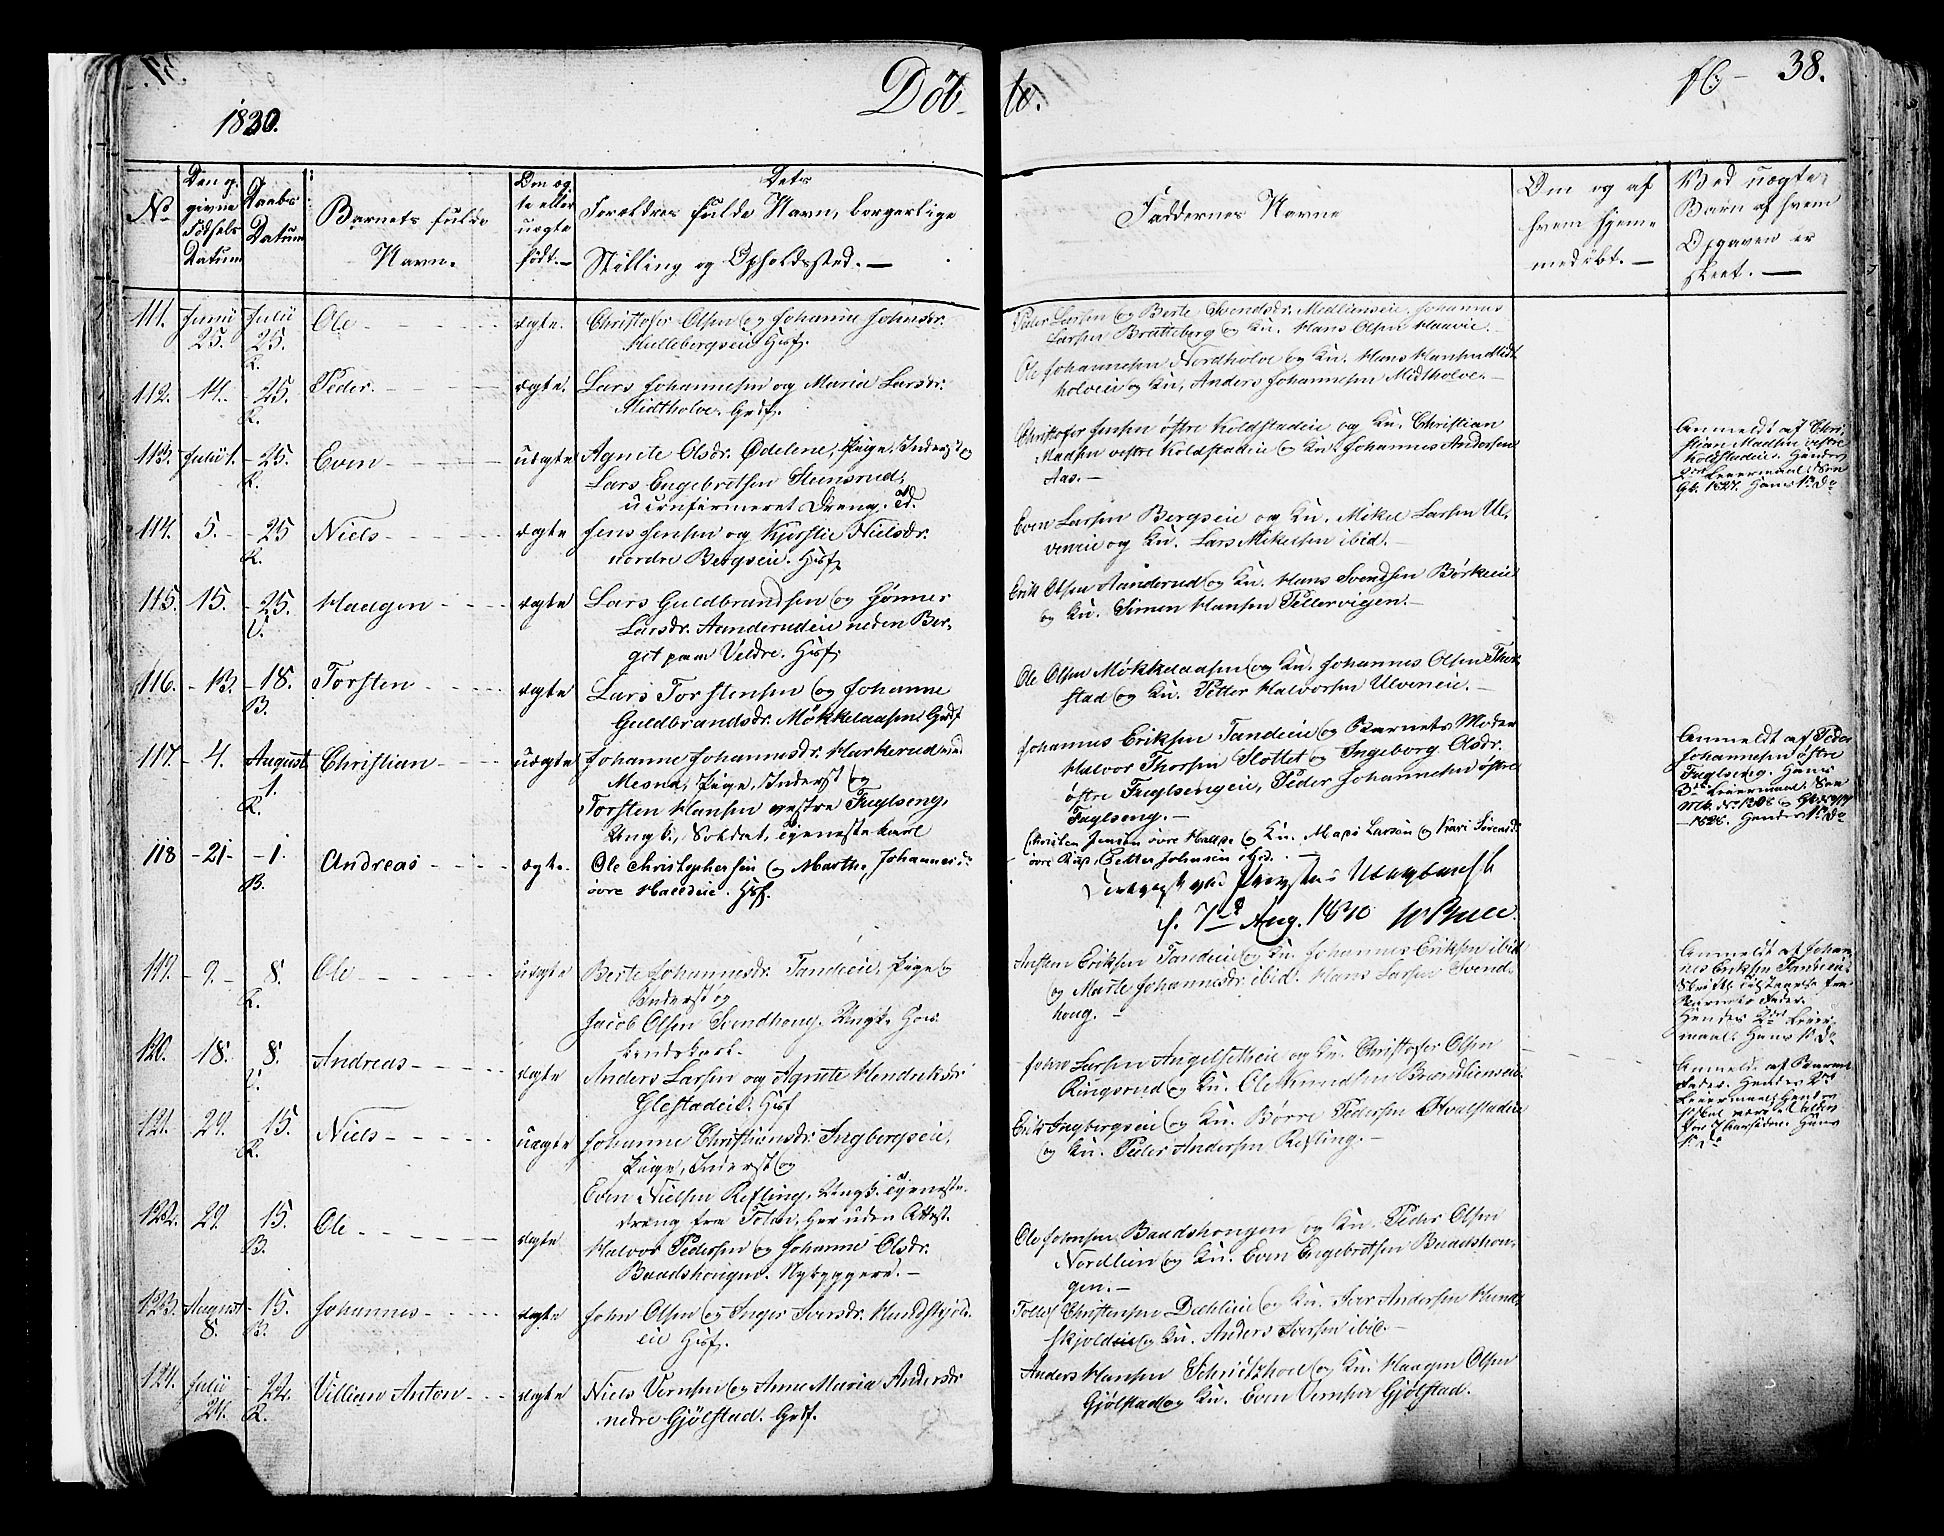 1830.
Døb-
te.
16-
38.
No
Den op-
givne
Fødsels
Datum
Daabs
Datum
Barnets fulde
Navn.
Om æg-
te eller
uægte
født.-
Dets
Forældres fulde Navn, borgerlige
Stilling og Opholdssted.-
Faddernes Navne
Om og af
hvem hjem-
medøbt.-
Ved uægte
Barn af hvem
Opgaven er
skeet.-
111. Junii 25. Julii 25. R. Ole ægte.
Christofer Olsen og Johanne Johnsdr.
Hullebergseie Husf.
Peder Larsen og Berte Svendsdr. Midtlienseie. Johannes
Larsen Bratteberg og Ku. Hans Olsen Haavie.-
112. 14. -25. R. Peder ægte.
Lars Johannesen og Maria Larsdr.
Midtholve. Grdf.
Ole Johannesen Nordholve og Ku. Hans Hansen Midt-
holveie og Ku, Anders Johannesen Midtholve.-
113. Julii 1. -25. R. Even uægte
Agnete Olsdr. Ødelene, Pige, Inderst og
Lars Engebretsen Stensrud,
uconfirmeret Dreng.
Christofer Jensen østre Koldstadeie og Ku. Christian
Madsen vestre Koldstadeie og Ku. Johannes Andersen
Aas.-
Anmeldt af Chri-
stian Madsen vestre
Koldstadeie. Hendes
Leiermaal. Søn
1827. Hans 1ste Do
114. 5. -25 R. Niels ægte
Jens Jensen og Kjerstie Nielsdr.
nordre Bergseie. Husf.
Even Larsen Bergseie og Ku. Mikel Larsen Ul-
veneie og Ku. Lars Mikelsen ibid.-
115. 15. -25. V. Haagen ægte
Lars Guldbrandsen og Gønner
Larsdr. Aanderudeie neden Ber-
get paa Veldre. Husf.
Erik Olsen Aanderud og Ku. Hans Svendsen Børkeeie
og Ku. Simen Hansen Tellervigen.-
116. -13. -18. B. Torsten ægte
Lars Torstensen og Johanne
Guldbrandsdr. Møkkelaasen Grdf
Ole Olsen Møkkelaasen og Ku. Johannes Olsen Thor-
stad og Ku. Petter Halvorsen Ulveneie.-
117. -4. August 1. R. Christian uægte
Johanne Johannesdr. Harkerud ved
Mesna, Pige, Inderst og
Torsten Hansen vestre Fuglseng,
Ungk., Soldat, Tjenestekarl
Johannes Eriksen Tandeeie og Barnets Moder
Halvor Thorsen Slottet og Ingeborg Olsdr.
østre Fuglsengeie, Peder Johannesen østre
Fuglseng.-
Anmeldt af Peder
Johannesen østre
Fuglseng. Hans
3die Leiermaal. See
1826. Hendes 1ste Do
118 -21- -1. B. Andreas ægte.
Ole Christophersen og Marthe Johannesdr
øvre Husf.
Christen Jensen øvre og Ku. Mads Larsen og Kari Iversdr
øvre Petter Johnsen ibid.
d. 7de Aug. 1830
119. -9.- 8. R. Ole uægte
Berte Johannesdr. Tandeeie, Pige og
Inderst og
Jacob Olsen Svendhoug. Ungk. Gaar-
mandskarl.
Anstein Eriksen Tandeeie og Ku. Johannes Eriksen ibid
og Marte Johannesdr. ibid. Hans Larsen Svend-
houg.-
Anmeldt af Johan-
nes Eriksen Tandeeie.
Skriftl. Tilstaaelse fra
Barnets Fader.
Hendes 2det Leier-
maal. Hans 1ste Do
120. 18. 8. V. Andreas ægte
Anders Larsen og Agnete Hendriksdr
Glestadeie. Husf
John Larsen Angelsetheie og Ku. Christofer Olsen
Ringsrud og Ku. Ole Knudsen Brændlienseie.
121. 29. 15. R. Niels uægte
Johanne Christiansdr. Ingbergseie,
Pige, Inderst og
Even Nielsen Refling, Ungk. Tjeneste-
dreng fra Her uden Attest.
Erik Ingbergseie og Ku. Børre Pedersen Hvalstadeie
og Ku. Peder Andersen Refling.-
Anmeldt af Barnets
Fader. Hendes 2det
Leiermaal; Hendes
skal være
for 7 Aar siden. Hans
1ste Do
122. 29. 15. B. Ole ægte
Halvor Pedersen og Johanne Olsdr.
Baadshougen. Nybyggere.-
Ole Johnsen Baadshougen og Ku. Peder Olsen
Nordlien og Ku. Even Engebretsen Baadshou-
gen.-
123. August 8. -15. B. Johannes ægte
John Olsen og Inger Iversdr. Hundskjold-
eie Husf.
Tollef Christensen Dæhlieie og Ku. Iver Andersen Hund-
skjoldeie og Ku. Anders Iversen ibid.-
124. Julii 24. -22. R. Villian Anton ægte
Niels Vernsen og Anne Maria Andersdr
nedre Gjølstad. Grdf.
Anders Hansen og Ku. Haagen Olsen
Gjølstad og Ku. Even Vernsen Gjølstad.